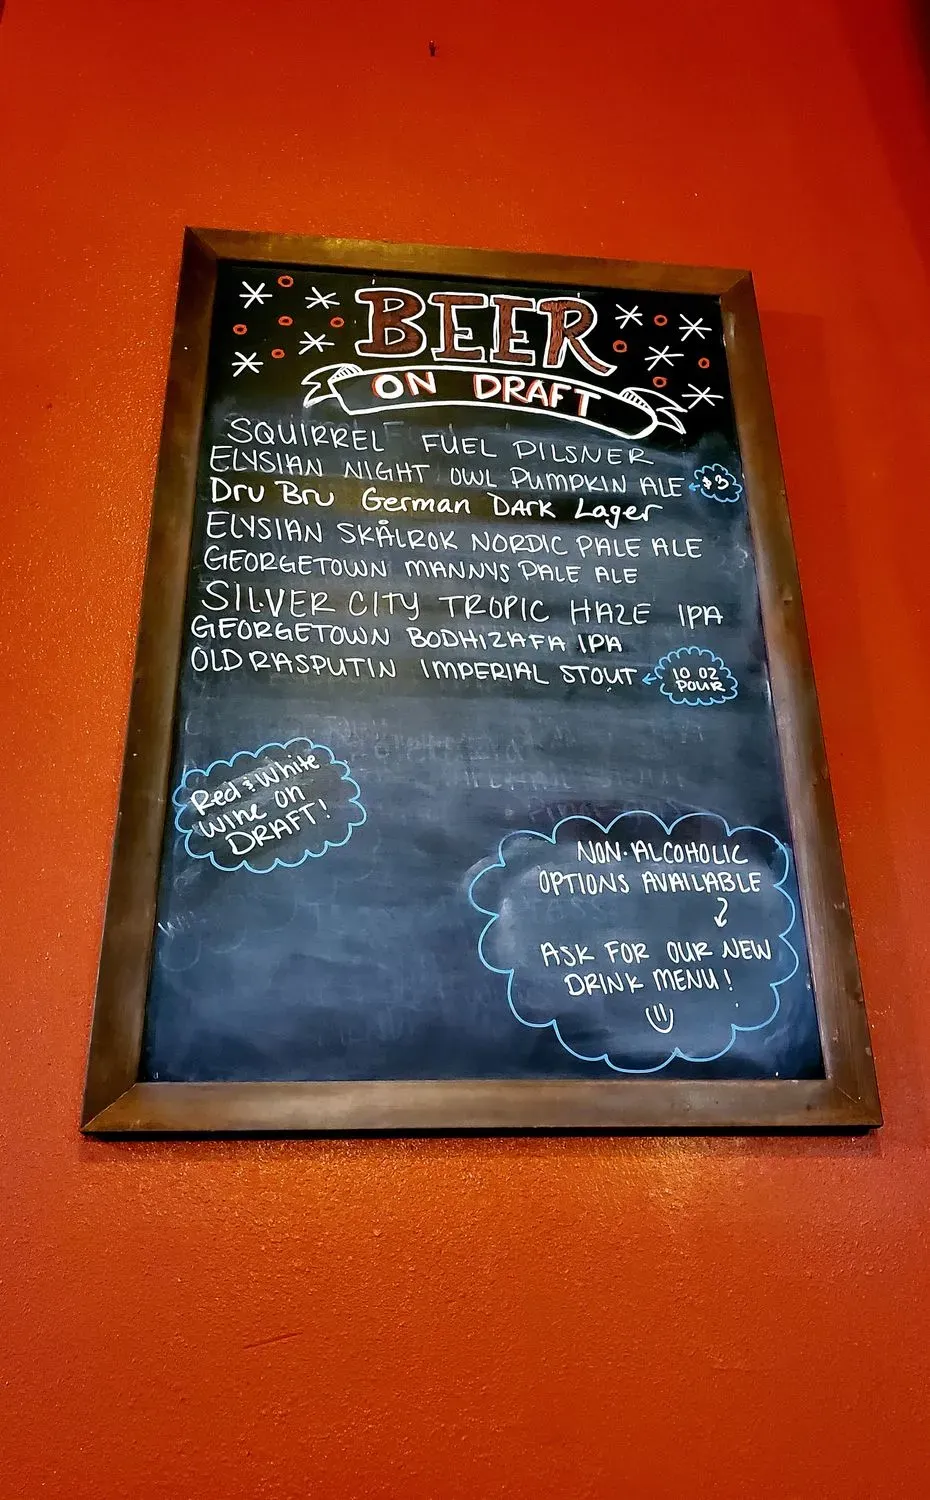 BEER
ON DRAFT
SQUIRREL FUEL PILSNER
ELYSIAN NIGHT OWL PUMPKIN ALE $3
Dru Bru German Dark Lager
ELYSIAN SKÅLROK NORDIC PALE ALE
GEORGETOWN MANNYS PALE ALE
SILVER CITY TROPIC HAZE IPA
GEORGETOWN BODHIZAFA IPA
OLD RASPUTIN IMPERIAL STOUT
10 OZ
POUR
Red & White
wine on
DRAFT!
NON-ALCOHOLIC
OPTIONS AVAILABLE
ASK FOR OUR NEW
DRINK MENU!